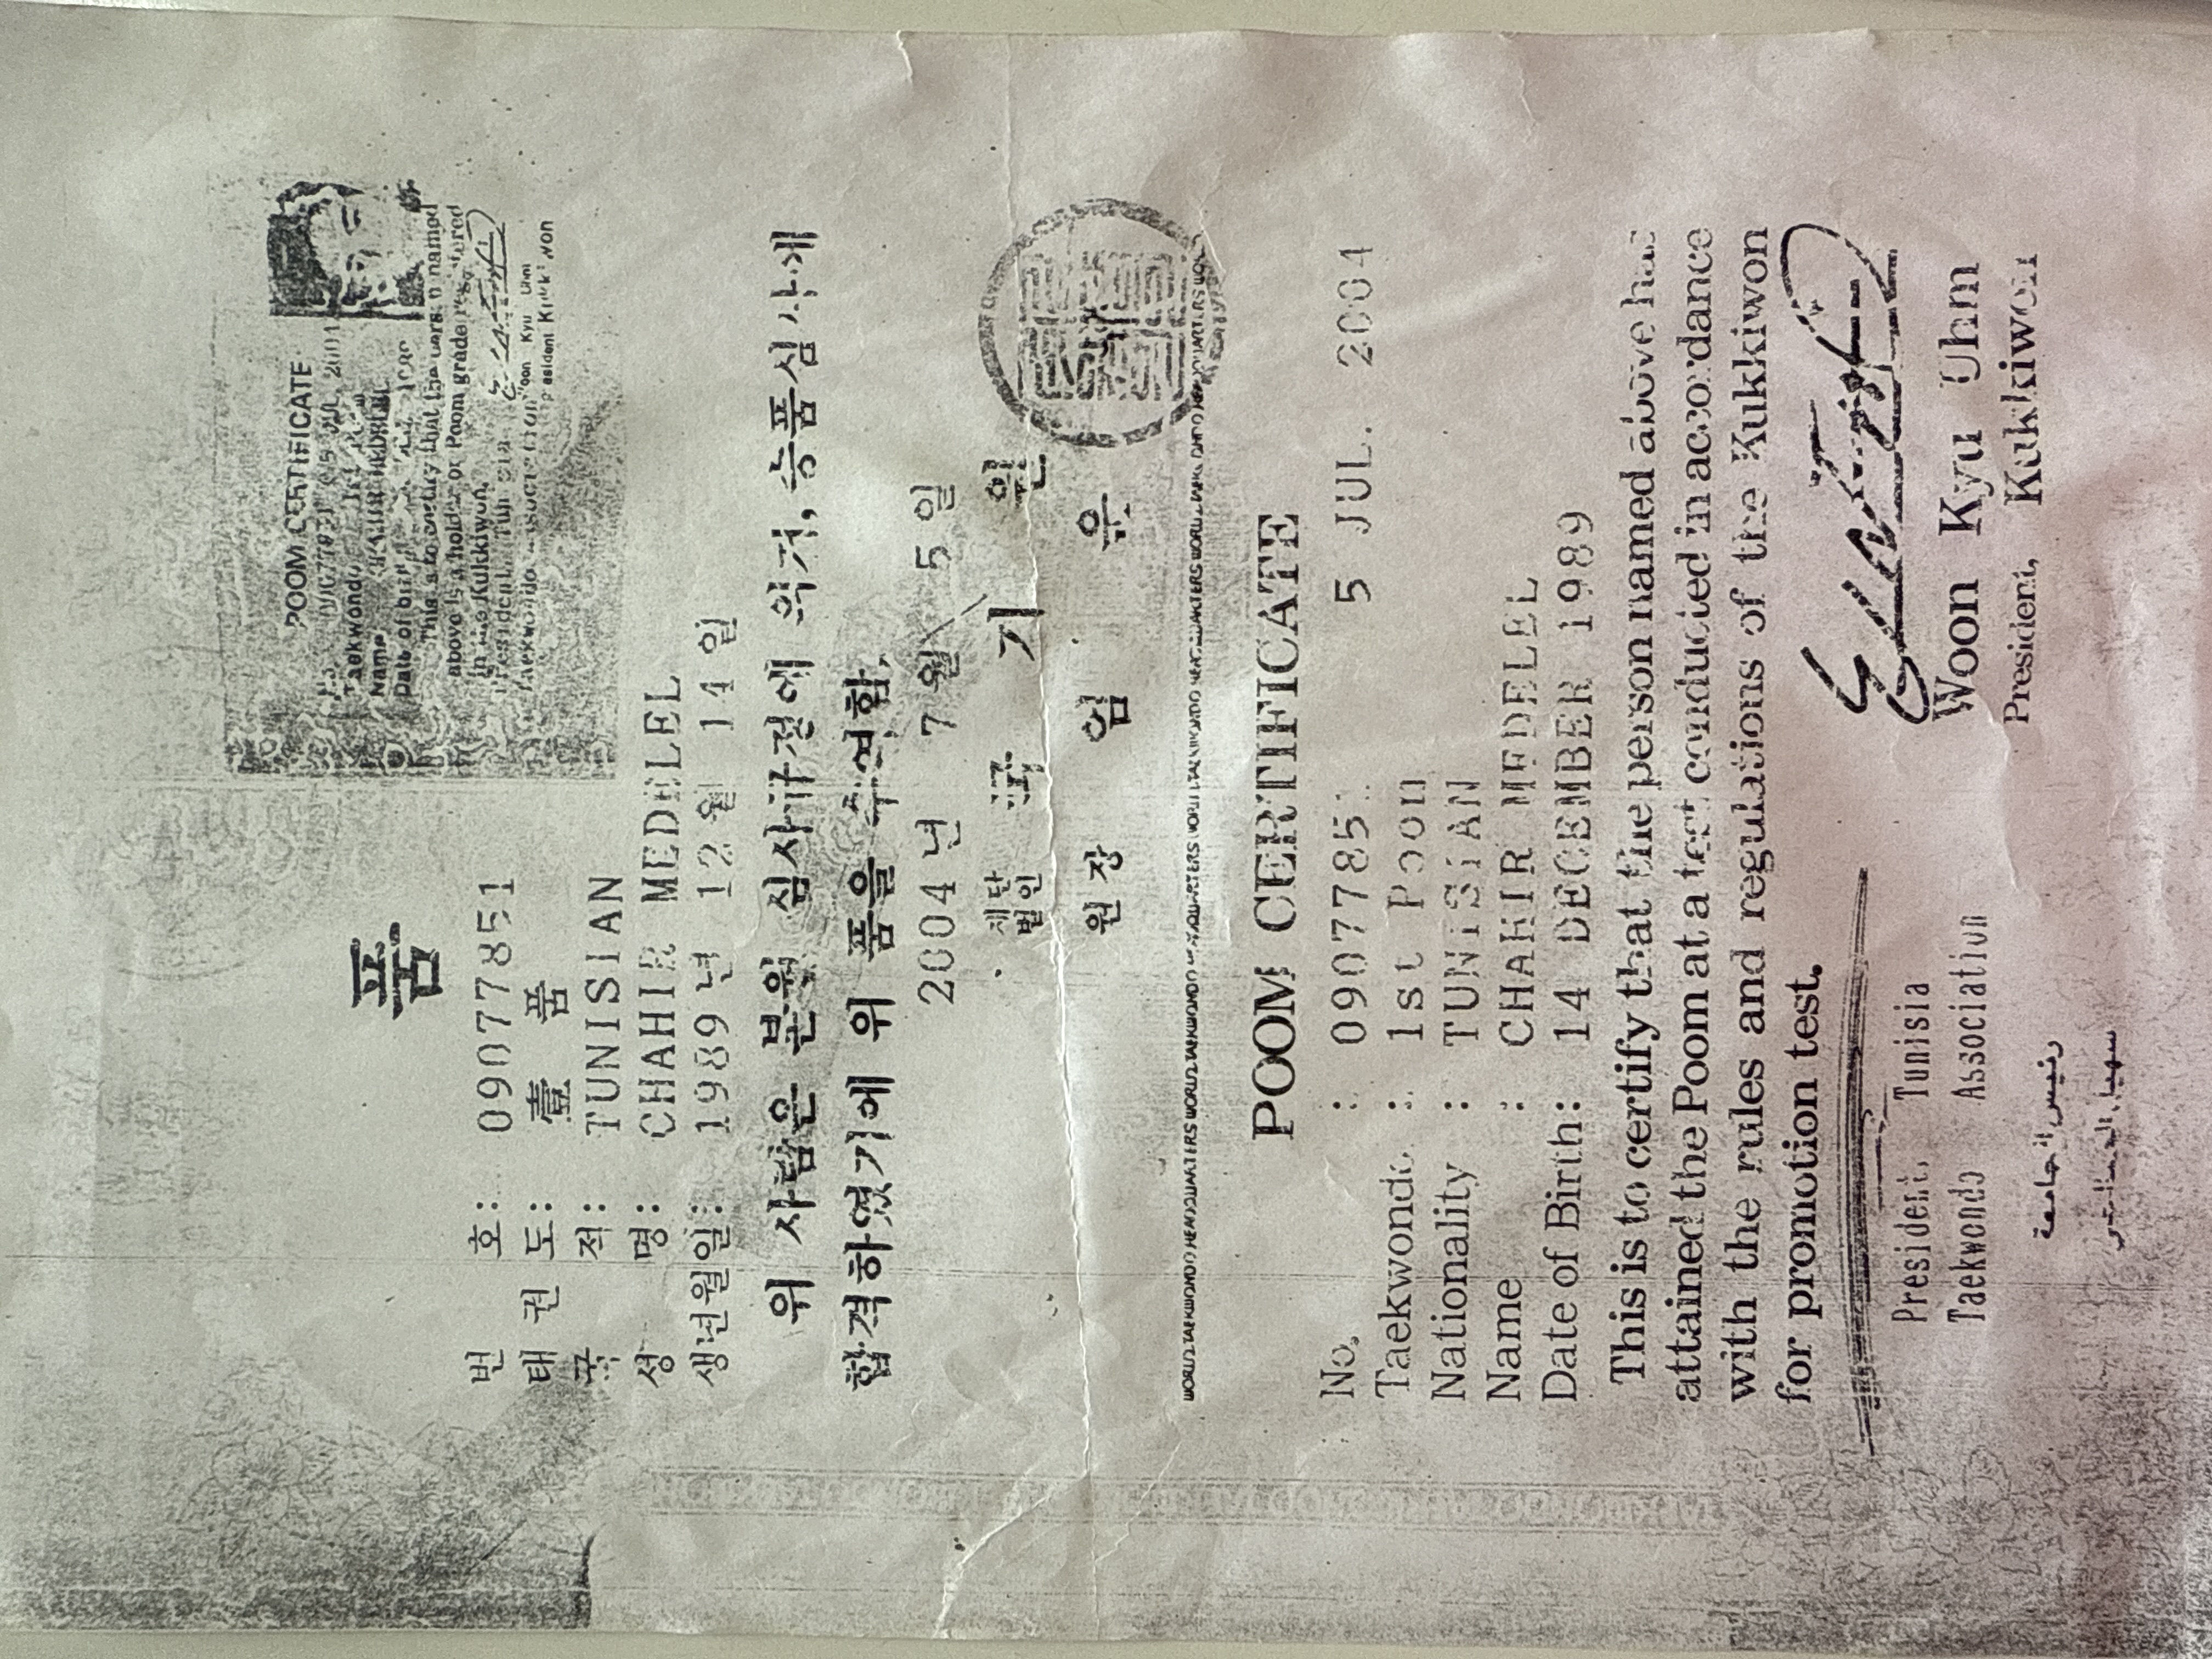 품
번 호: 09077851
태 권 도: 壹 품
국 적: TUNISIAN
성 명: CHAHIR MEDELEL
생년월일: 1989 년 12 월 14 일
위 사람은 본원 심사규정에 의거, 승품심사에
합격하였기에 위 품을 수여함.
2004 년 7 월 5 일
재단법인 국 기 원
원 장 엄 운
POOM CERTIFICATE
Taekwondo
Name
Date of birth
This is to certify that the person named
above is a holder of Poom grade
in the Kukkiwon.
Woon Kyu Uhm
WORLD TAEKWONDO HEADQUARTERS WORLD TAEKWONDO HEADQUARTERS WORLD TAEKWONDO HEADQUARTERS WORLD TAEKWONDO HEADQUARTERS
POOM CERTIFICATE
No. : 0907785 5 JUL. 2004
Taekwondo : 1st Poom
Nationality : TUNISIAN
Name : CHAHIR MEDELEL
Date of Birth: 14 DECEMBER 1989
This is to certify that the person named above has
attained the Poom at a test conducted in accordance
with the rules and regulations of the Kukkiwon
for promotion test.
President, Tunisia
Taekwondo Association
Woon Kyu Uhm
President, Kukkiwon
رئيس الجامعة